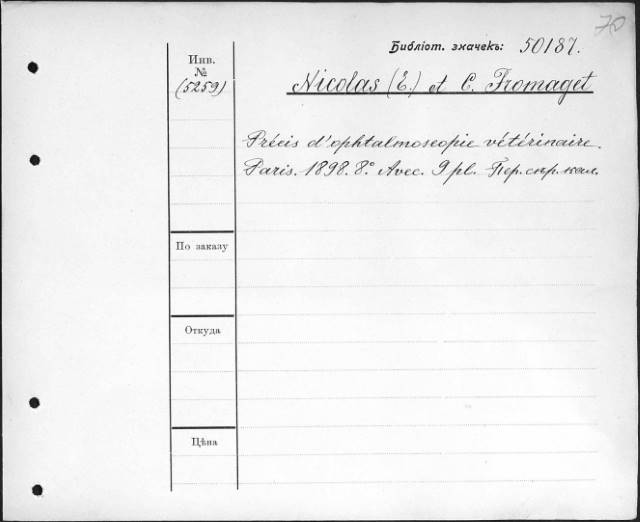 70
Библіот. значекъ: 50187.
Инв.
№
(5259)
Nicolas (E.) et C. Fromaget
Précis d'ophtalmoscopie vétérinaire.
Paris. 1898. 8.° Avec. 9 pl. Пер. кол.
По заказу
Откуда
Цѣна